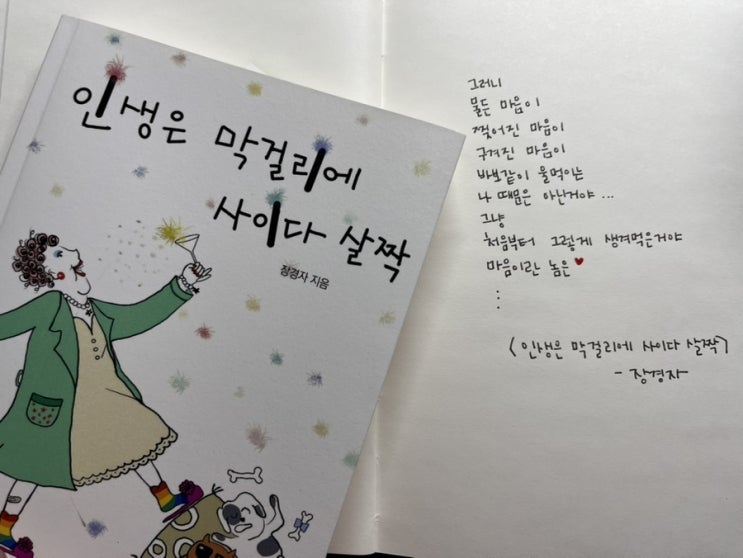 인생은 막걸리에
사이다 살짝
장경자 지음
그러니
물든 마음이
찢어진 마음이
구겨진 마음이
바보같이 울먹이는
나 때문은 아닌거야 ...
그냥
처음부터 그렇게 생겨먹은거야
마음이란 놈은♥
⋮
<인생은 막걸리에 사이다 살짝>
- 장경자